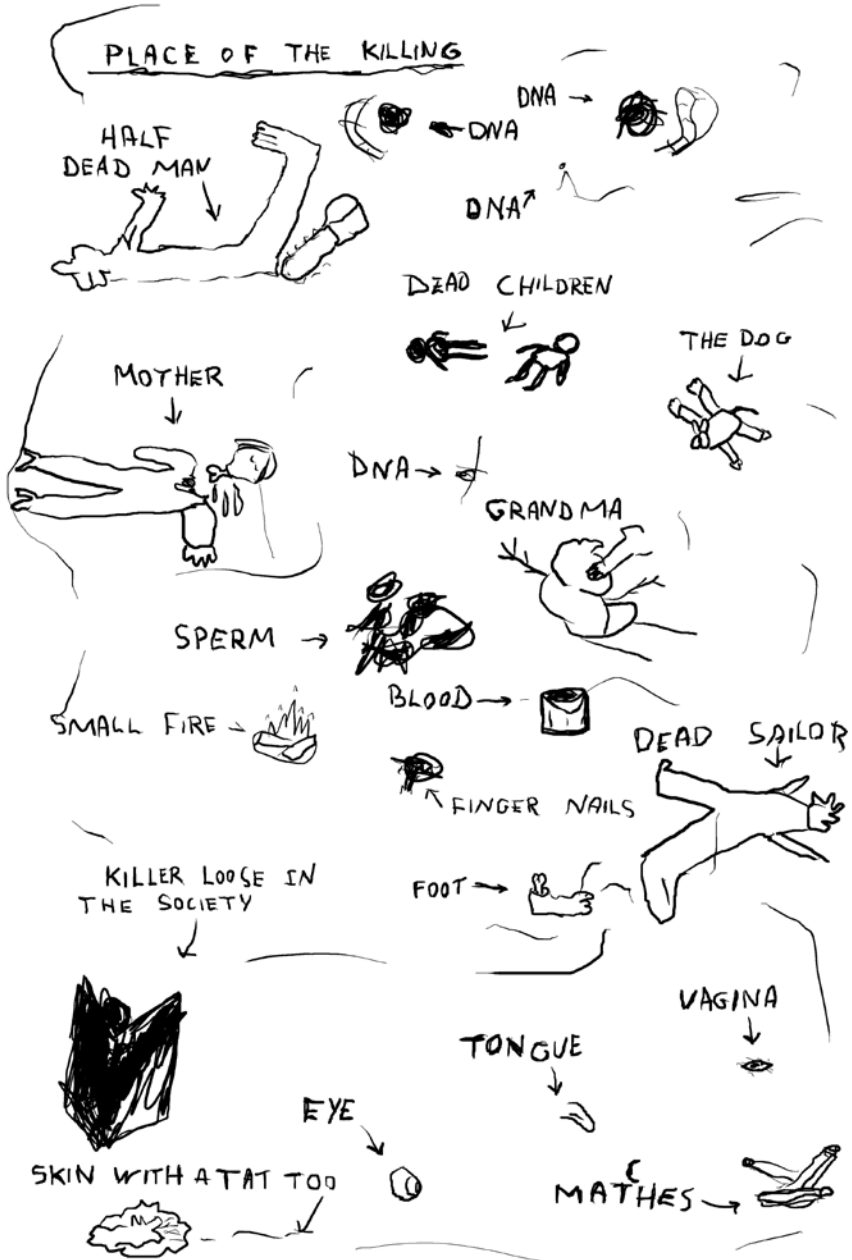 PLACE OF THE KILLING
DNA
DNA
HALF
DEAD MAN
DNA
DEAD CHILDREN
THE DOG
MOTHER
DNA
GRANDMA
SPERM
BLOOD
SMALL FIRE
DEAD SAILOR
FINGER NAILS
KILLER LOOSE IN
THE SOCIETY
FOOT
VAGINA
TONGUE
EYE
SKIN WITH A TAT TOO
MATCHES